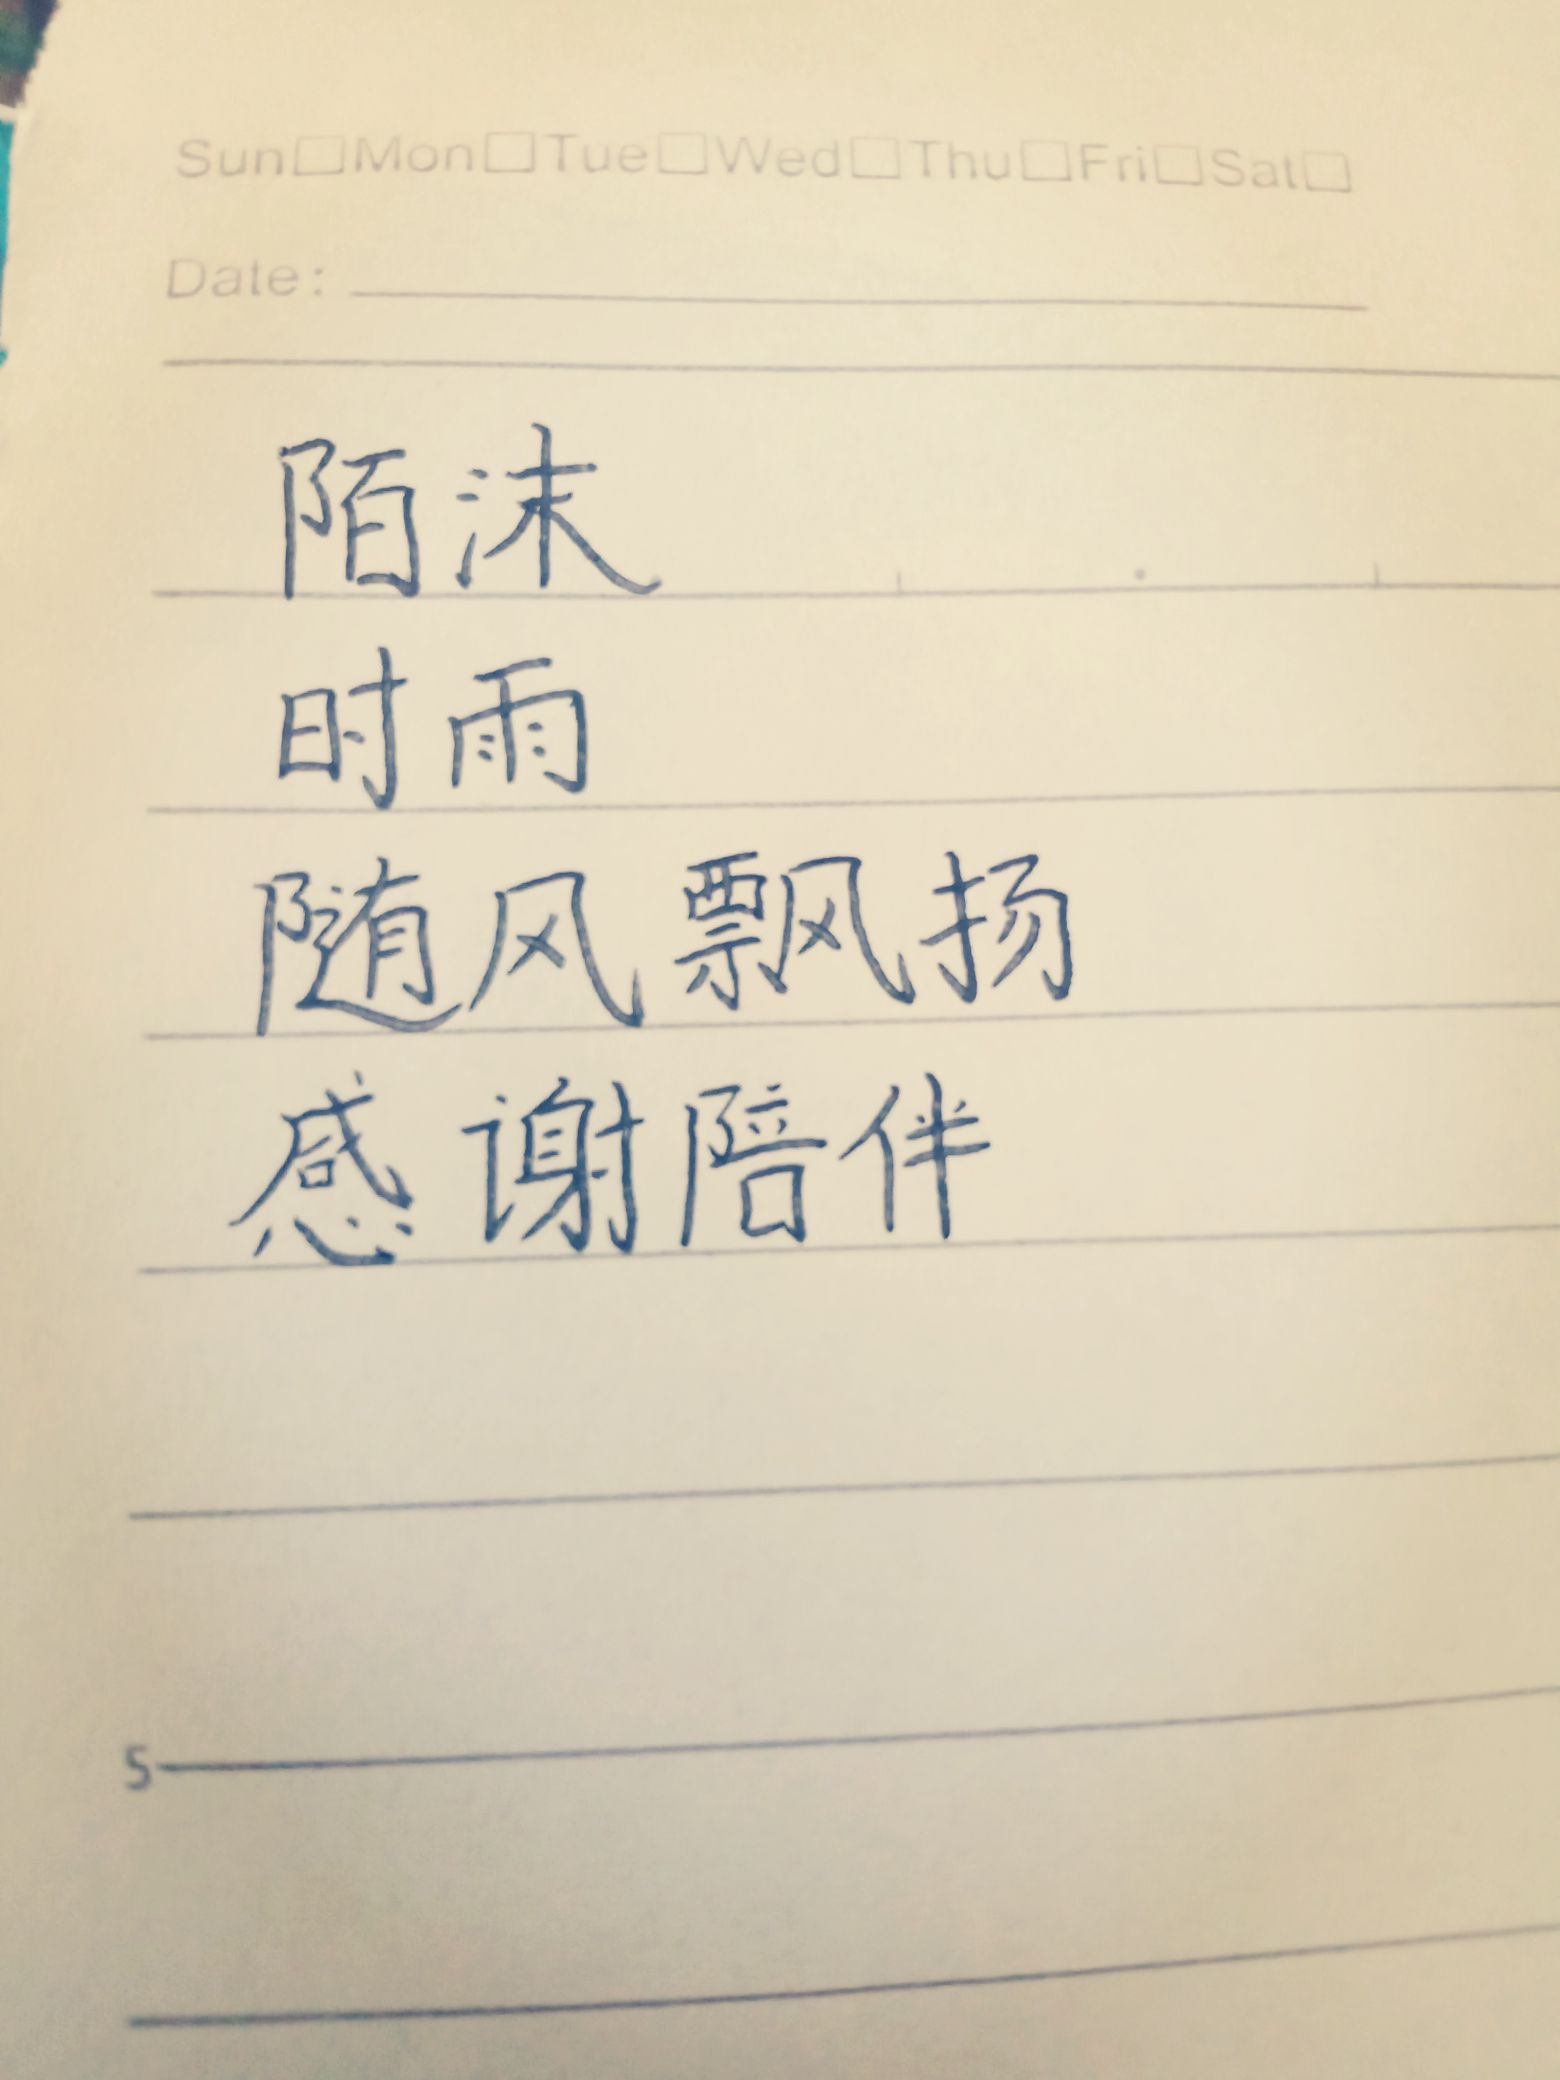 Sun□Mon□Tue□Wed□Thu□Fri□Sat□
Date:
陌沫
时雨
随风飘扬
感谢陪伴
5